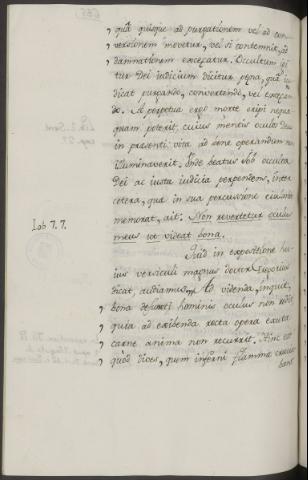 quâ quisque ad purgationem vel ad con-
versionem movetur, vel si contemnit, ad
damnationem exceratur. Occultum igi
tur Dei iudicium dicitur pœna, quâ iu
dicat purgando, convertendo, vel excecan
do. A perpetua ergo morte eripi nequa
quam poterit, cuius mentis oculos Deus
in præsenti vita ad bene operandum non
illuminaverit. Unde beatus Iob occulta
Dei ac iusta iudicia perpendens, inter
cetera, quæ in sua percussione
memorat, ait: Non revertetur oculus
meus ut videat bona.
Iob 7.7.
Quid in expositione hu-
ius versiculi magnus doctor Gregorius
dicat, audiamus. Ad videnda, inquit,
bona defuncti hominis oculus non redit
quia ad exibenda recta opera exuta
carne anima non recurrit. Hinc est
quod dives, quem inferni flamma
bant